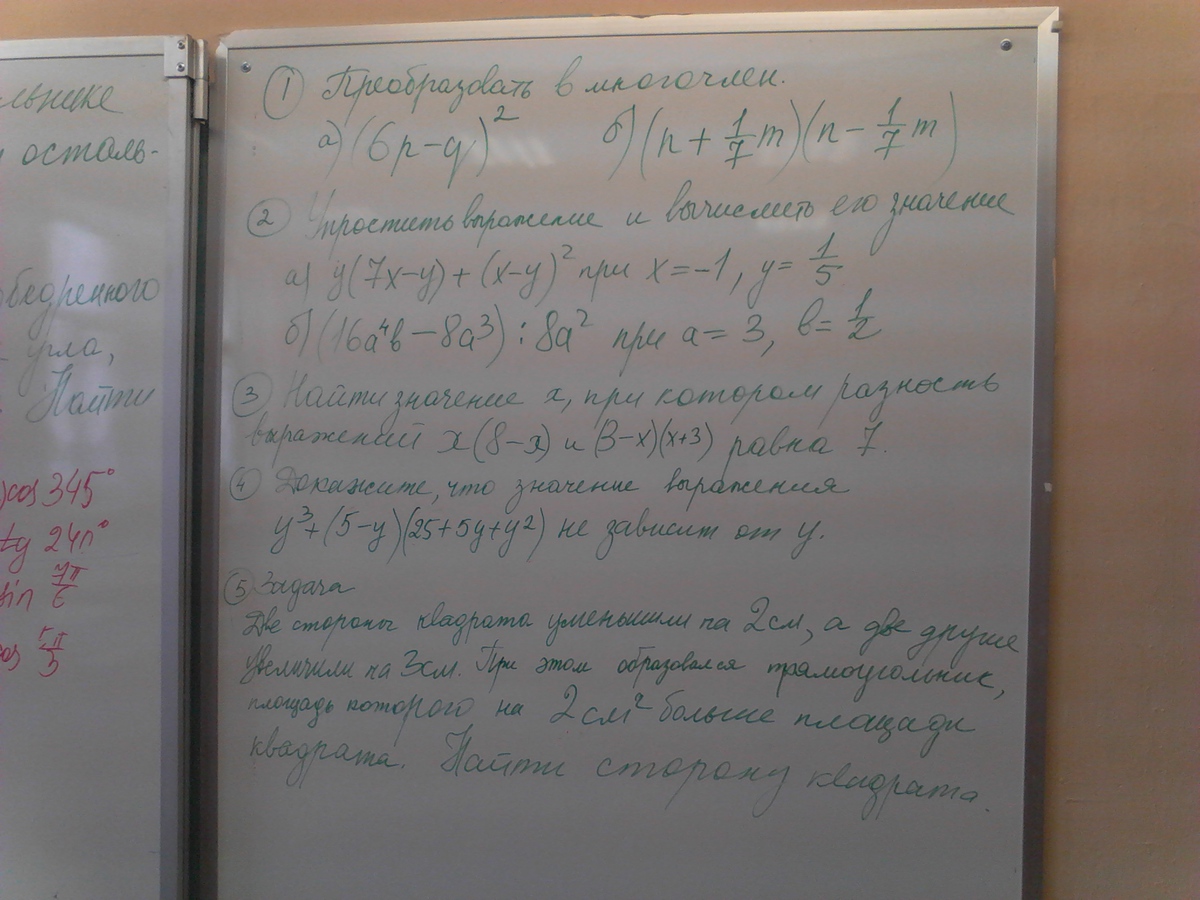 льнике
осталь-
бедренного
угла,
Найти
cos 345°
tg 240°
sin 7π/6
① Преобразовать в многочлен.
а) (6p-q)² б) (n + 1/7 m)(n - 1/7 m)
② Упростить выражение и вычислить его значение
а) y(7x-y) + (x-y)² при x = -1, y = 1/5
б) (16a⁴b - 8a³) : 8a² при a = 3, b = 1/2
③ Найти значение x, при котором разность
выражений x(8-x) и (3-x)(x+3) равна 7.
④ Докажите, что значение выражения
y³ + (5-y)(25+5y+y²) не зависит от y.
⑤ Задача
Две стороны квадрата уменьшили на 2см, а две другие
увеличили на 3см. При этом образовался прямоугольник,
площадь которого на 2см² больше площади
квадрата. Найти сторону квадрата.